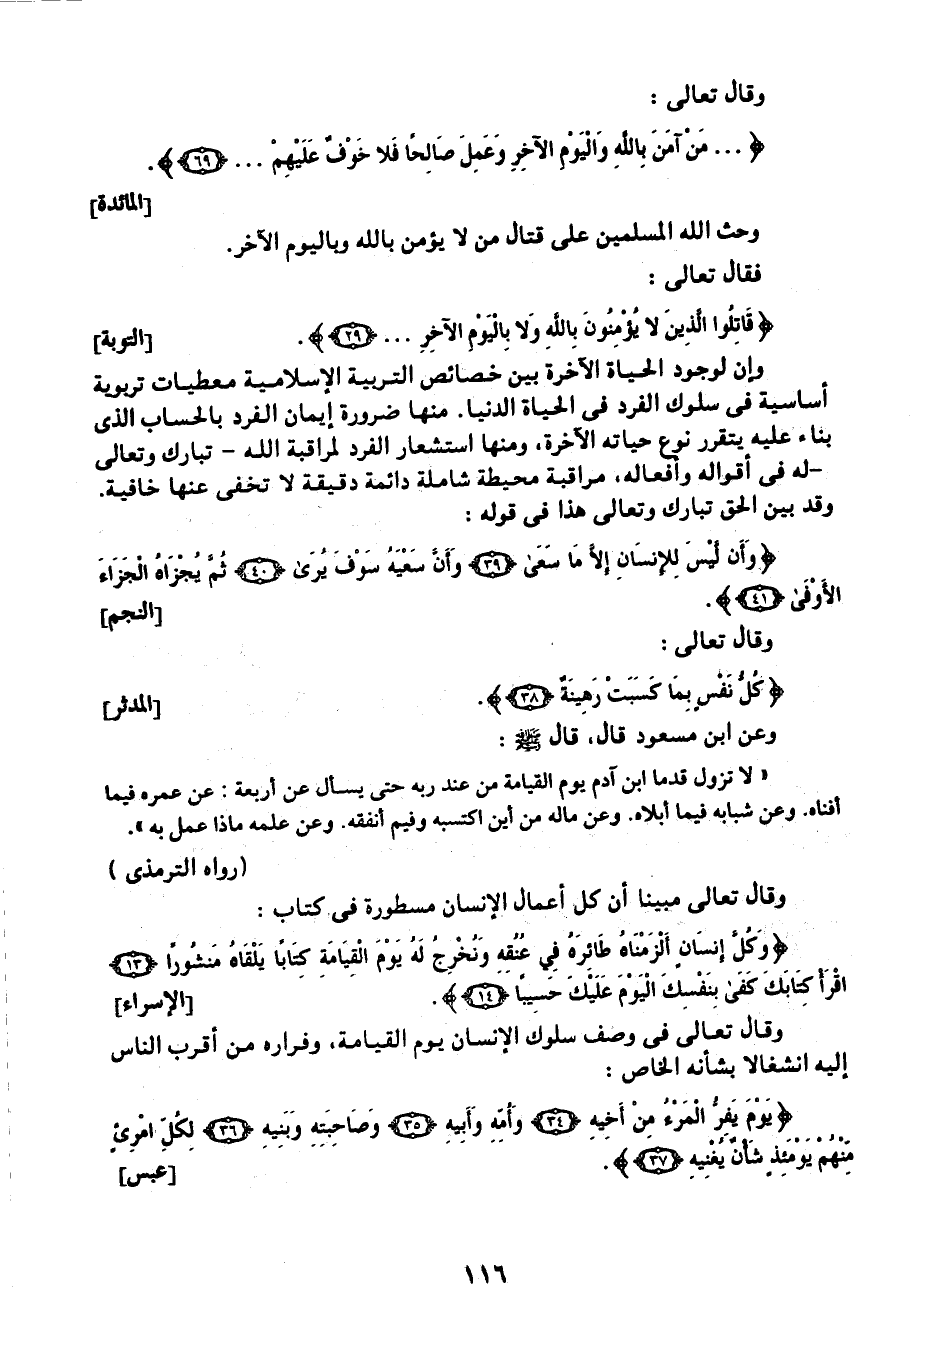 وقال تعالى :
﴿ ... مَنْ آمَنَ بِاللَّهِ وَالْيَوْمِ الآخِرِ وَعَمِلَ صَالِحًا فَلا خَوْفٌ عَلَيْهِمْ ... ﴿٦٩﴾ ﴾ .
[المائدة]
وحث الله المسلمين على قتال من لا يؤمن بالله وباليوم الآخر.
فقال تعالى :
﴿ قَاتِلُوا الَّذِينَ لا يُؤْمِنُونَ بِاللَّهِ وَلا بِالْيَوْمِ الآخِرِ ... ﴿٢٩﴾ ﴾ . [التوبة]
وإن لوجود الحياة الآخرة بين خصائص التربية الإسلامية معطيات تربوية
أساسية فى سلوك الفرد فى الحياة الدنيا. منها ضرورة إيمان الفرد بالحساب الذى
بناء عليه يتقرر نوع حياته الآخرة، ومنها استشعار الفرد لمراقبة الله – تبارك وتعالى
–له فى أقواله وأفعاله، مراقبة محيطة شاملة دائمة دقيقة لا تخفى عنها خافية.
وقد بين الحق تبارك وتعالى هذا فى قوله :
﴿ وَأَن لَّيْسَ لِلإِنسَانِ إِلاَّ مَا سَعَىٰ ﴿٣٩﴾ وَأَنَّ سَعْيَهُ سَوْفَ يُرَىٰ ﴿٤٠﴾ ثُمَّ يُجْزَاهُ الْجَزَاءَ
الأَوْفَىٰ ﴿٤١﴾ ﴾ . [النجم]
وقال تعالى :
﴿ كُلُّ نَفْسٍ بِمَا كَسَبَتْ رَهِينَةٌ ﴿٣٨﴾ ﴾ . [المدثر]
وعن ابن مسعود قال، قال ﷺ :
« لا تزول قدما ابن آدم يوم القيامة من عند ربه حتى يسأل عن أربعة : عن عمره فيما
أفناه. وعن شبابه فيما أبلاه. وعن ماله من أين اكتسبه وفيم أنفقه. وعن علمه ماذا عمل به ».
(رواه الترمذى )
وقال تعالى مبينا أن كل أعمال الإنسان مسطورة فى كتاب :
﴿ وَكُلَّ إِنسَانٍ أَلْزَمْنَاهُ طَائِرَهُ فِي عُنُقِهِ وَنُخْرِجُ لَهُ يَوْمَ الْقِيَامَةِ كِتَابًا يَلْقَاهُ مَنشُورًا ﴿١٣﴾
اقْرَأْ كِتَابَكَ كَفَىٰ بِنَفْسِكَ الْيَوْمَ عَلَيْكَ حَسِيبًا ﴿١٤﴾ ﴾ . [الإسراء]
وقال تعالى فى وصف سلوك الإنسان يوم القيامة، وفراره من أقرب الناس
إليه انشغالا بشأنه الخاص :
﴿ يَوْمَ يَفِرُّ الْمَرْءُ مِنْ أَخِيهِ ﴿٣٤﴾ وَأُمِّهِ وَأَبِيهِ ﴿٣٥﴾ وَصَاحِبَتِهِ وَبَنِيهِ ﴿٣٦﴾ لِكُلِّ امْرِئٍ
مِّنْهُمْ يَوْمَئِذٍ شَأْنٌ يُغْنِيهِ ﴿٣٧﴾ ﴾ . [عبس]
١١٦